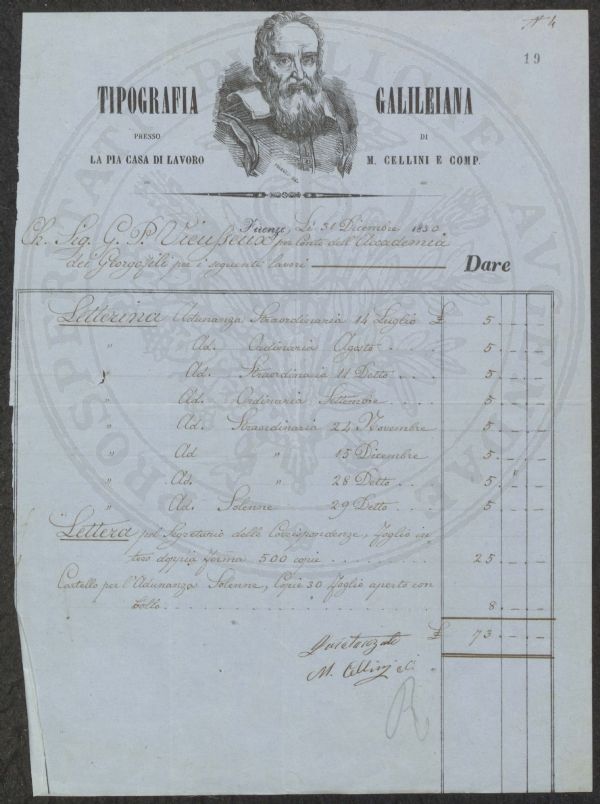 N 4
19
TIPOGRAFIA GALILEIANA
PRESSO DI
LA PIA CASA DI LAVORO M. CELLINI E COMP.
Firenze Lì 31 Dicembre 1850
Ch. Sig. G. P. Vieusseux per conto dell'Accademia
dei Georgofili per i seguenti lavori Dare
Letterina Adunanza Straordinaria 14 Luglio £ 5
" Ad. Ordinaria Agosto 5
" Ad. Straordinaria 11 Detto 5
" Ad. Ordinaria Settembre 5
" Ad. Straordinaria 24 Novembre 5
" Ad " 15 Dicembre 5
" Ad. " 28 Detto 5
" Ad. Solenne 29 Detto 5
Lettera pel Segretario delle Corrispondenze, foglio in
tero doppia forma 500 copie 25
Cartello per l'Adunanza Solenne, Copie 30 foglio aperto con
bollo 8
£ 73
Quietanzato
M. Cellini e C.
PROSPERITATI PUBLICAE AUGENDAE